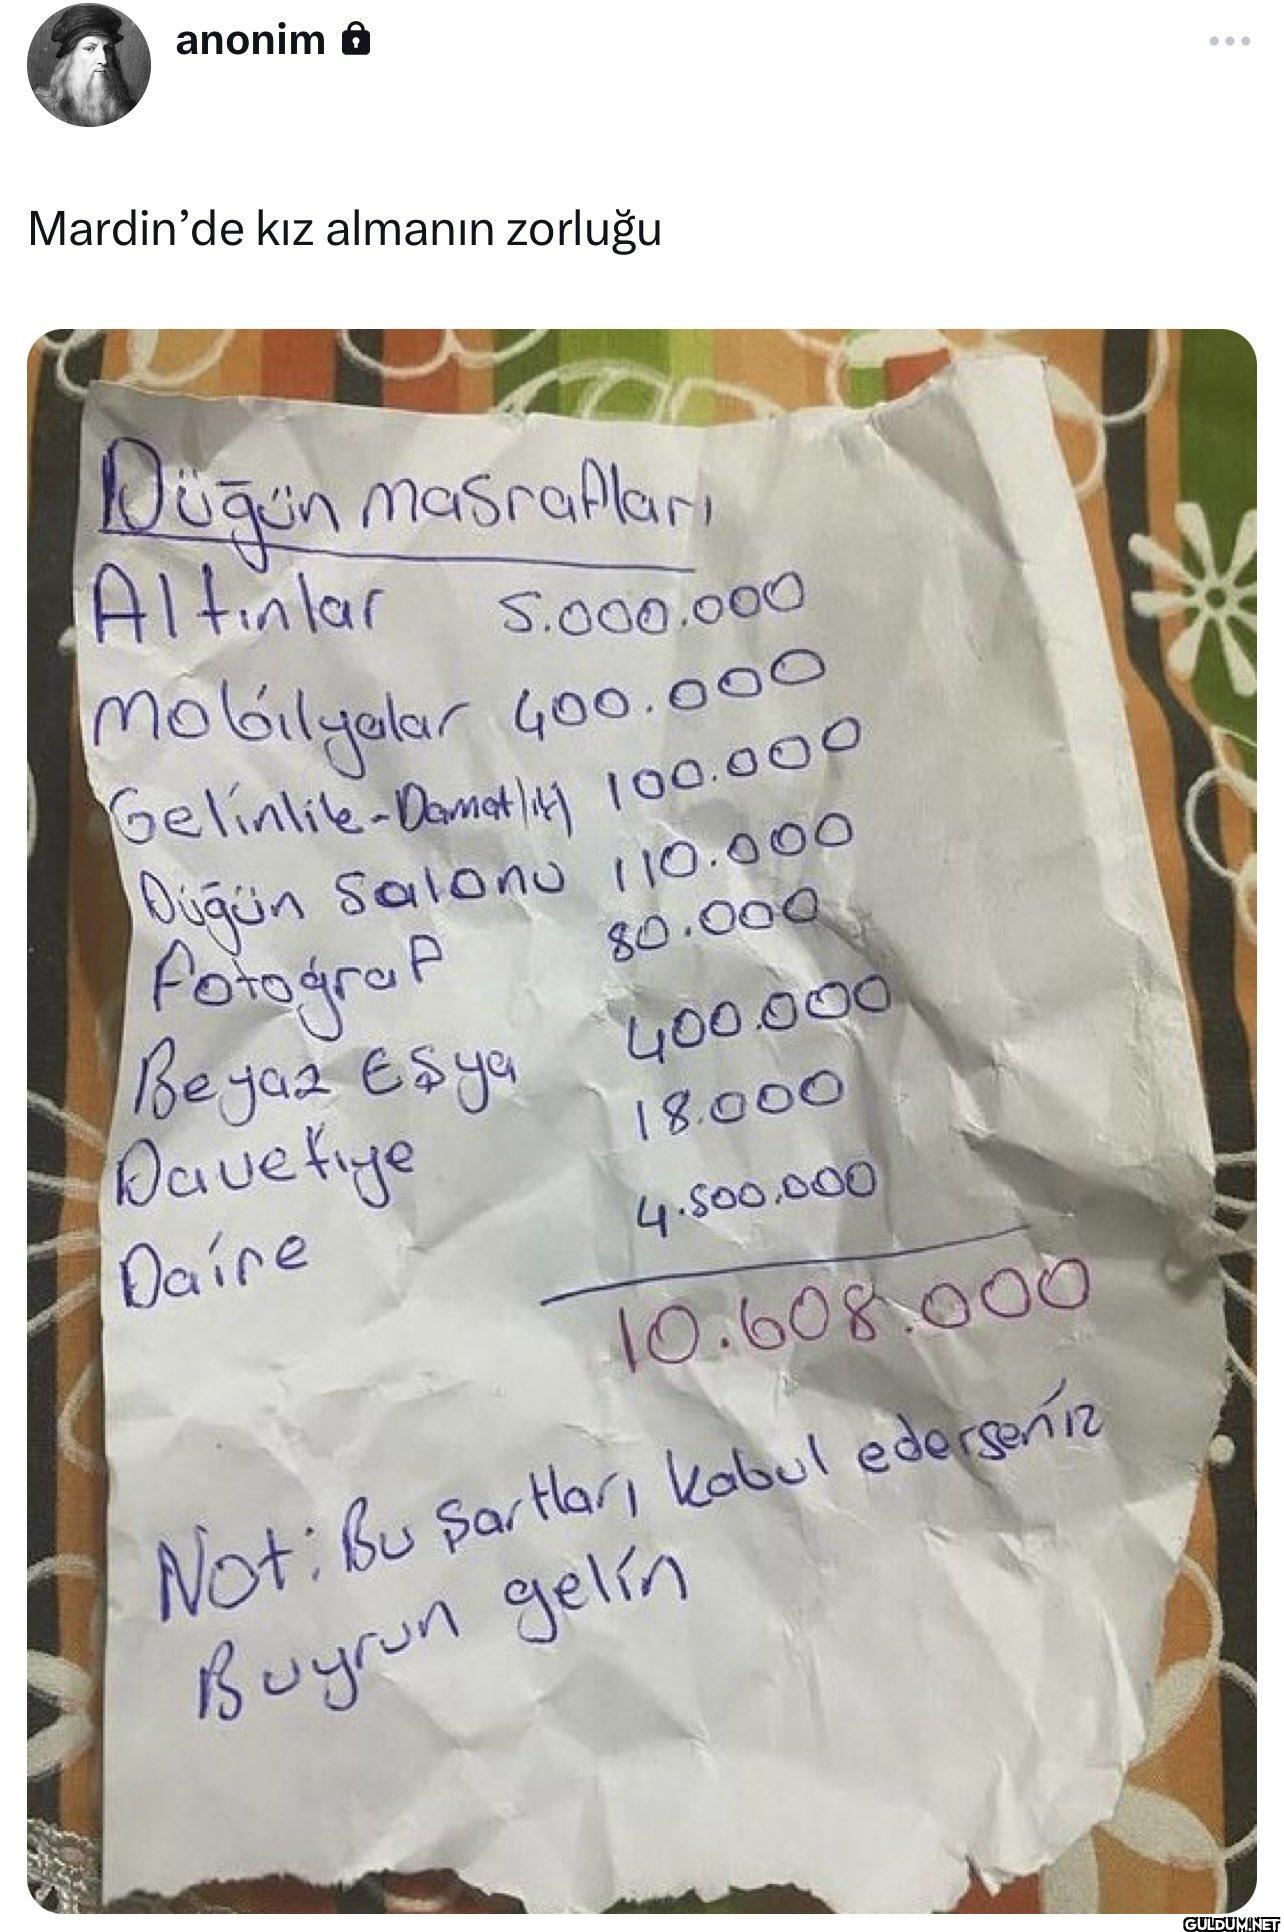 anonim
Mardin’de kız almanın zorluğu
Düğün masrafları
Altınlar 5.000.000
Mobilyalar 400.000
Gelinlik-Damatlık 100.000
Düğün Salonu 110.000
Fotoğraf 80.000
Beyaz Eşya 400.000
Davetiye 18.000
Daire 4.500.000
10.608.000
Not: Bu şartları kabul ederseniz
Buyrun gelin
GULDUM.NET